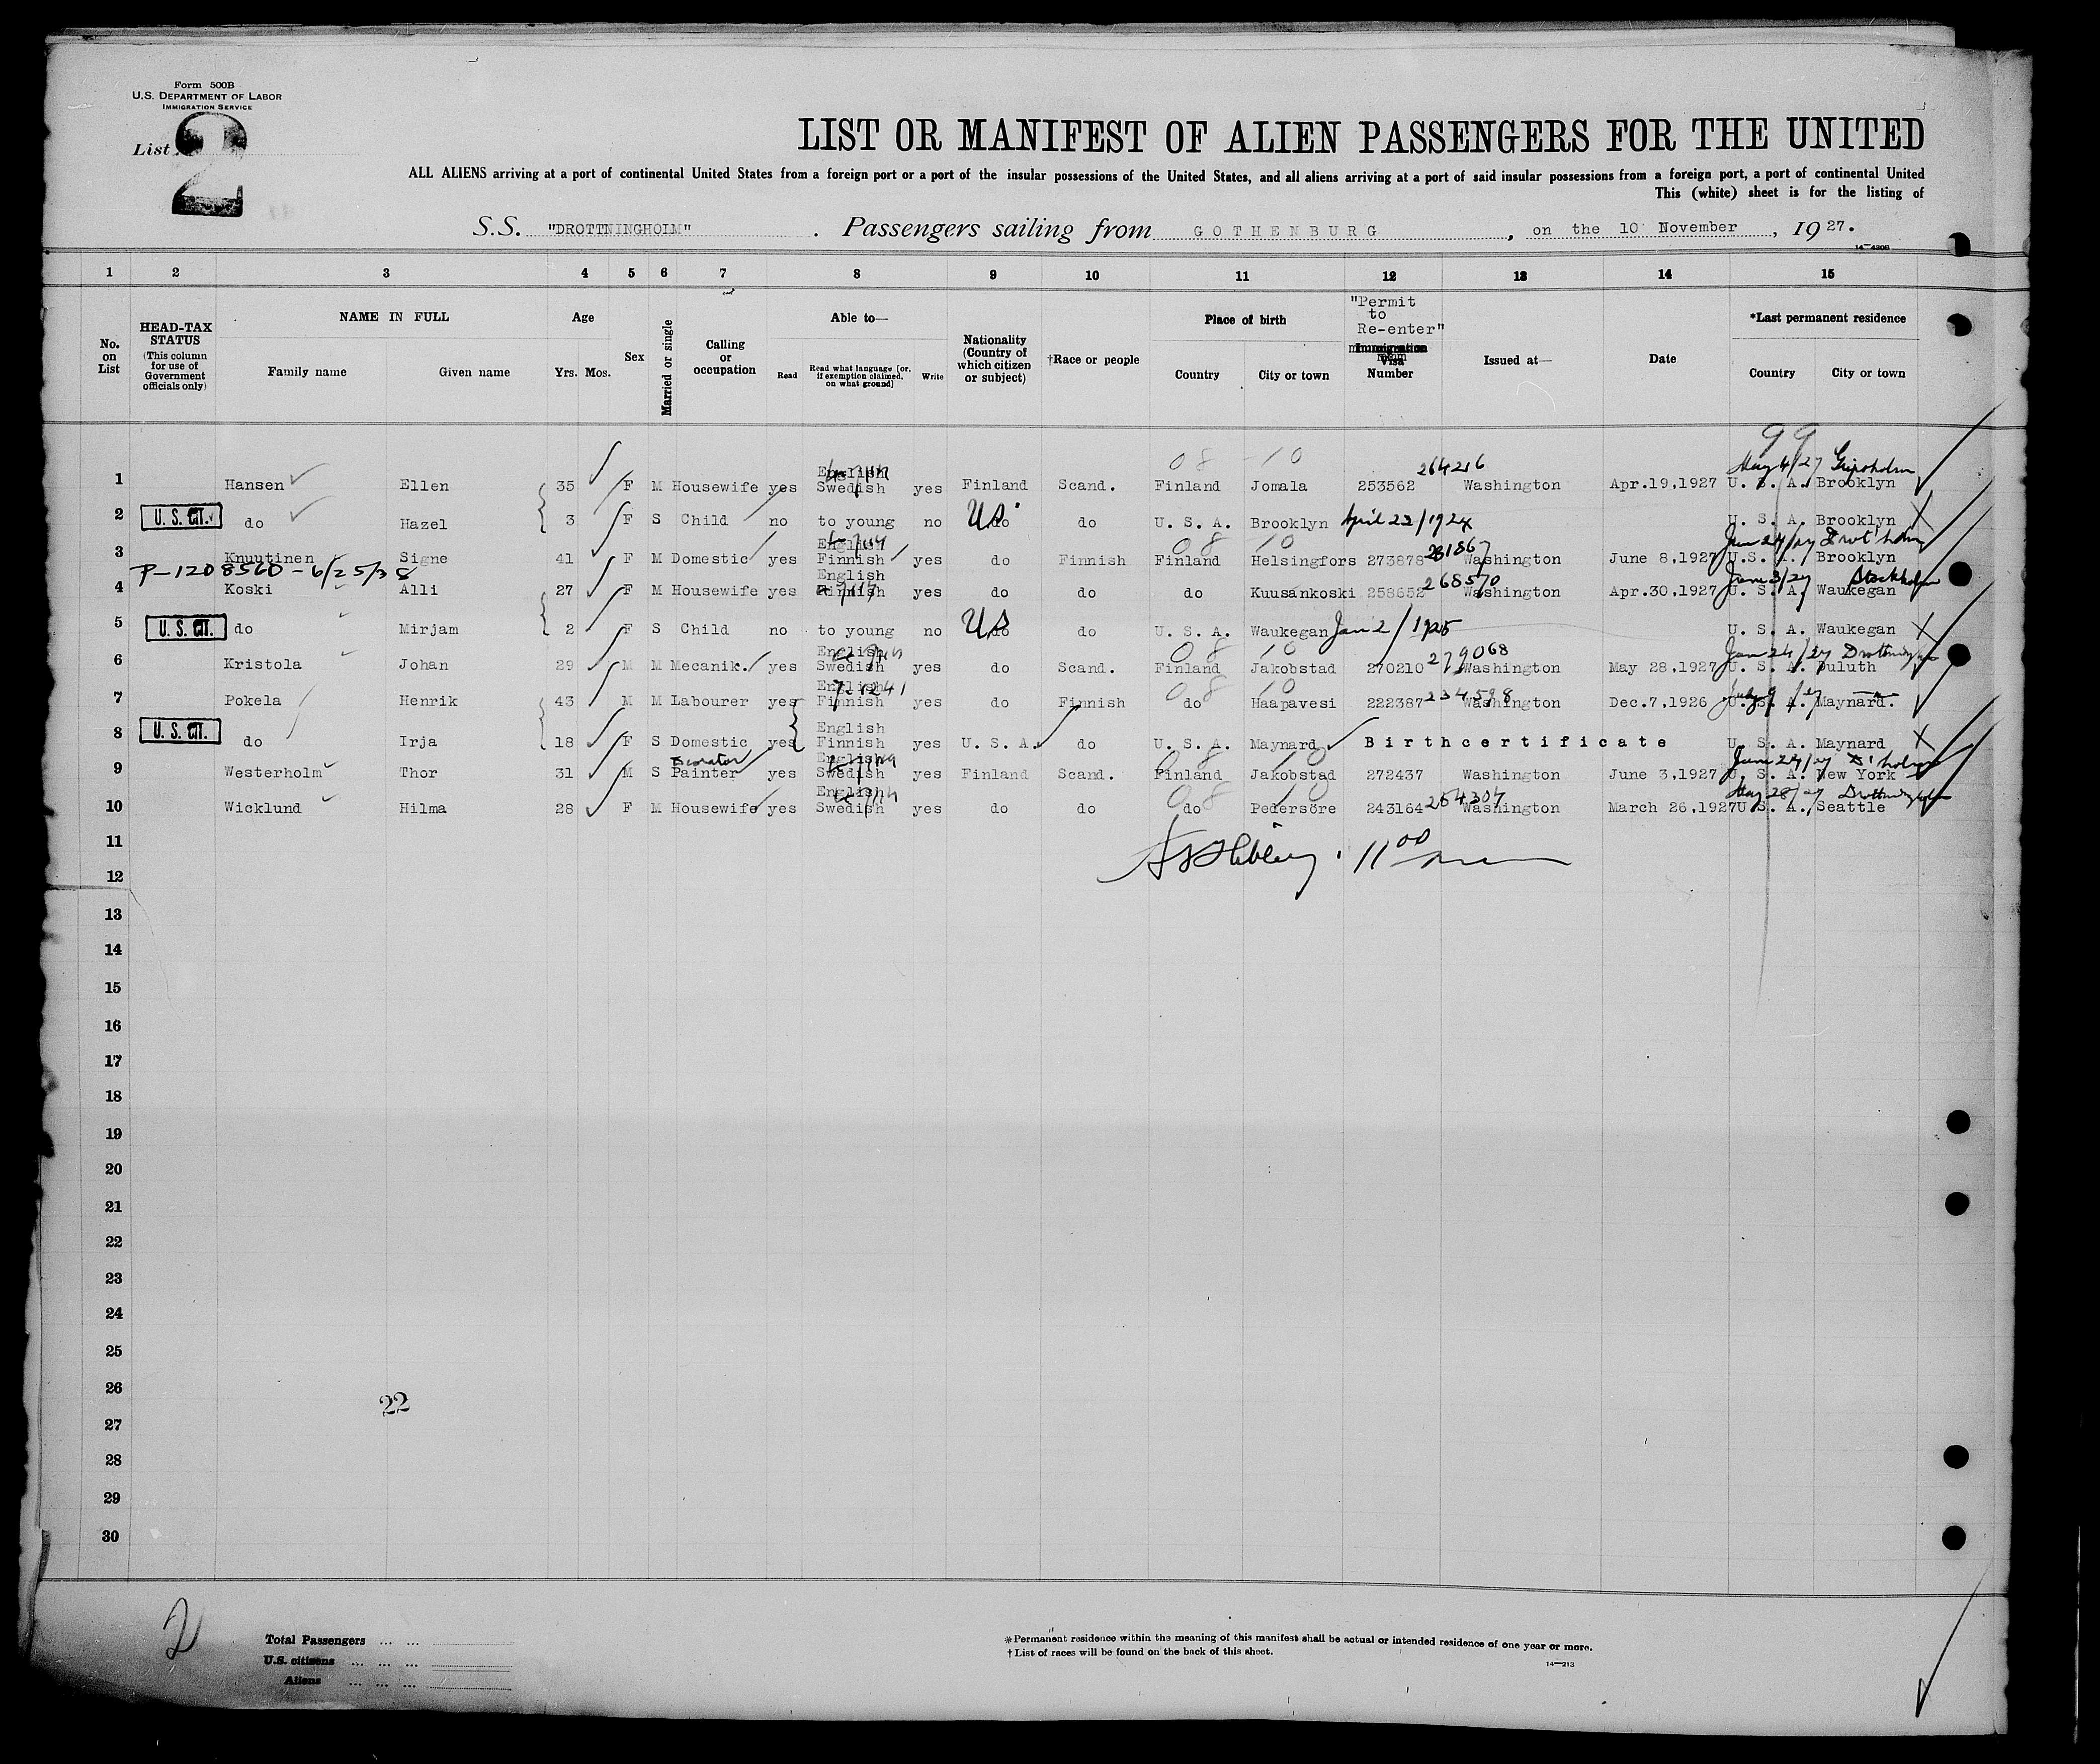 Form 500B
U.S. DEPARTMENT OF LABOR
IMMIGRATION SERVICE
List 2
LIST OR MANIFEST OF ALIEN PASSENGERS FOR THE UNITED
ALL ALIENS arriving at a port of continental United States from a foreign port or a port of the insular possessions of the United States, and all aliens arriving at a port of said insular possessions from a foreign port, a port of continental United
This (white) sheet is for the listing of
S.S. "DROTTNINGHOLM" . Passengers sailing from GOTHENBURG , on the 10 November , 19 27.
14—4208
1 2 3 4 5 6 7 8 9 10 11 12 13 14 15
No. on List
HEAD-TAX STATUS (This column for use of Government officials only)
NAME IN FULL
Family name Given name
Age
Yrs. Mos.
Sex
Married or single
Calling or occupation
Able to—
Read Read what language [or, if exemption claimed, on what ground] Write
Nationality (Country of which citizen or subject)
†Race or people
Place of birth
Country City or town
"Permit to Re-enter"
Immigration Visa Number
Issued at—
Date
*Last permanent residence
Country City or town
99
08 10 264216 May 4/27 Gripsholm
1 Hansen Ellen 35 F M Housewife yes English Swedish yes Finland Scand. Finland Jomala 253562 Washington Apr.19,1927 U. S. A. Brooklyn
2 U. S. CIT. do Hazel 3 F S Child no to young no do US do U. S. A. Brooklyn April 22/1924 U. S. A. Brooklyn
08 10 281867
3 Knuutinen Signe 41 F M Domestic yes English Finnish yes do Finnish Finland Helsingfors 273878 Washington June 8,1927 U.S. A. Brooklyn
P-1208560-6/25/38 268570 Stockholm
4 Koski Alli 27 F M Housewife yes English Finnish yes do do do Kuusankoski 258652 Washington Apr.30,1927 U. S. A. Waukegan
5 U. S. CIT. do Mirjam 2 F S Child no to young no do US do U. S. A. Waukegan Jan 2/1925 U. S. A. Waukegan
08 10 279068
6 Kristola Johan 29 M M Mecanik. yes English Swedish yes do Scand. Finland Jakobstad 270210 Washington May 28,1927 U. S. A. Duluth
08 10 234598
7 Pokela Henrik 43 M M Labourer yes English Finnish yes do Finnish do Haapavesi 222387 Washington Dec.7,1926 U. S. A. Maynard.
8 U. S. CIT. do Irja 18 F S Domestic yes English Finnish yes U. S. A. do U. S. A. Maynard Birthcertificate U. S. A. Maynard
08 10
9 Westerholm Thor 31 M S Painter yes English Swedish yes Finland Scand. Finland Jakobstad 272437 Washington June 3,1927 U. S. A. New York
08 10 254307 May 28/27
10 Wicklund Hilma 28 F M Housewife yes English Swedish yes do do do Pedersöre 243164 Washington March 26,1927 U. S. A. Seattle
11
12
13
14
15
16
17
18
19
20
21
22
23
24
25
26
22
27
28
29
30
2
Total Passengers
U.S. citizens
Aliens
*Permanent residence within the meaning of this manifest shall be actual or intended residence of one year or more.
†List of races will be found on the back of this sheet.
14—213